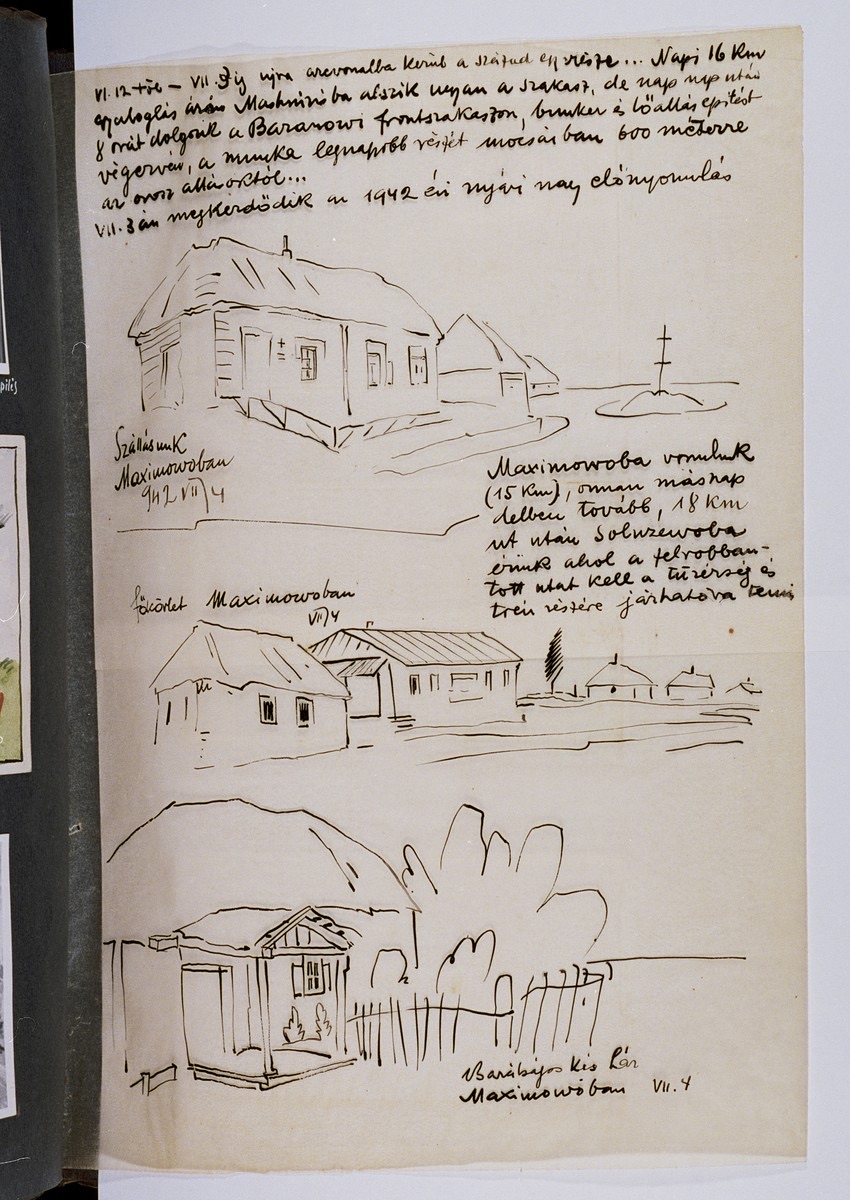 VI. 12-től – VII. 3 ig ujra arcvonalba kerül a század egy része ... Napi 16 Km
gyaloglás árán ba alszik ugyan a szakasz, de nap nap után
8 órát dolgozik a Baranowi frontszakaszon, bunker és lőállás építést
végezvén, a munka legnagobb részét mocsárban 600 méterre
az orosz állásoktól...
VII. 3 án megkezdődik az 1942 évi nyári nagy előnyomulás
Szállásunk
Maximowoban
942 VII/4
Maximowoba vonulunk
(15 Km), onnan másnap
délben tovább, 18 Km
ut után Solnzewoba
érünk ahol a felrobban-
tott utat kell a tüzérség és
trén részére járhatóvá tenni
főkörlet Maximowoban
VII/4
Barátságos kis ház
Maximowóban VII. 4
pülés